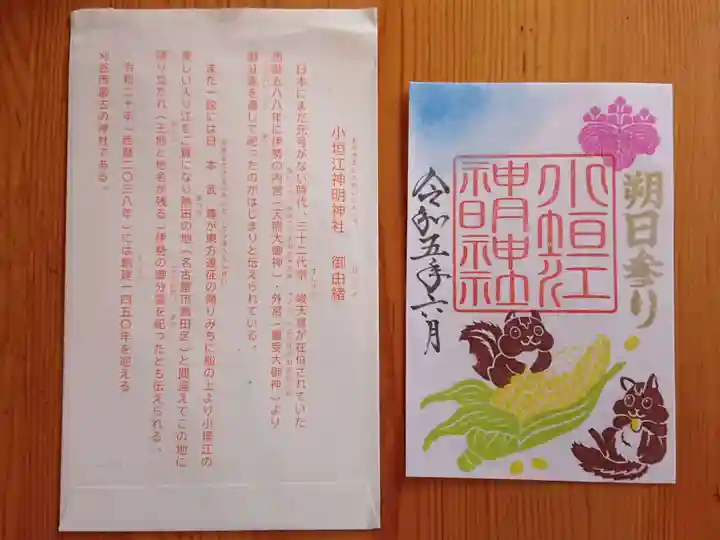 小垣江神明神社　御由緒
日本にまだ元号がない時代、三十二代崇峻天皇が在位されていた
西暦五八八年に伊勢の内宮(天照大御神)・外宮(豊受大御神)より
御分霊を遷して祀ったのがはじまりと伝えられている。
また一説には日本武尊が東方遠征の帰りみちに船の上より小垣江の
美しい入り江をご覧になり熱田の地(名古屋市熱田区)と間違えてこの地に
降り立たれ(王地と地名が残る)伊勢の御分霊を祀ったとも伝えられる。
令和二十年(西暦二〇三八年)には創建一四五〇年を迎える
刈谷市最古の神社である。
朔日参り
小垣江
神明神社
令和五年六月